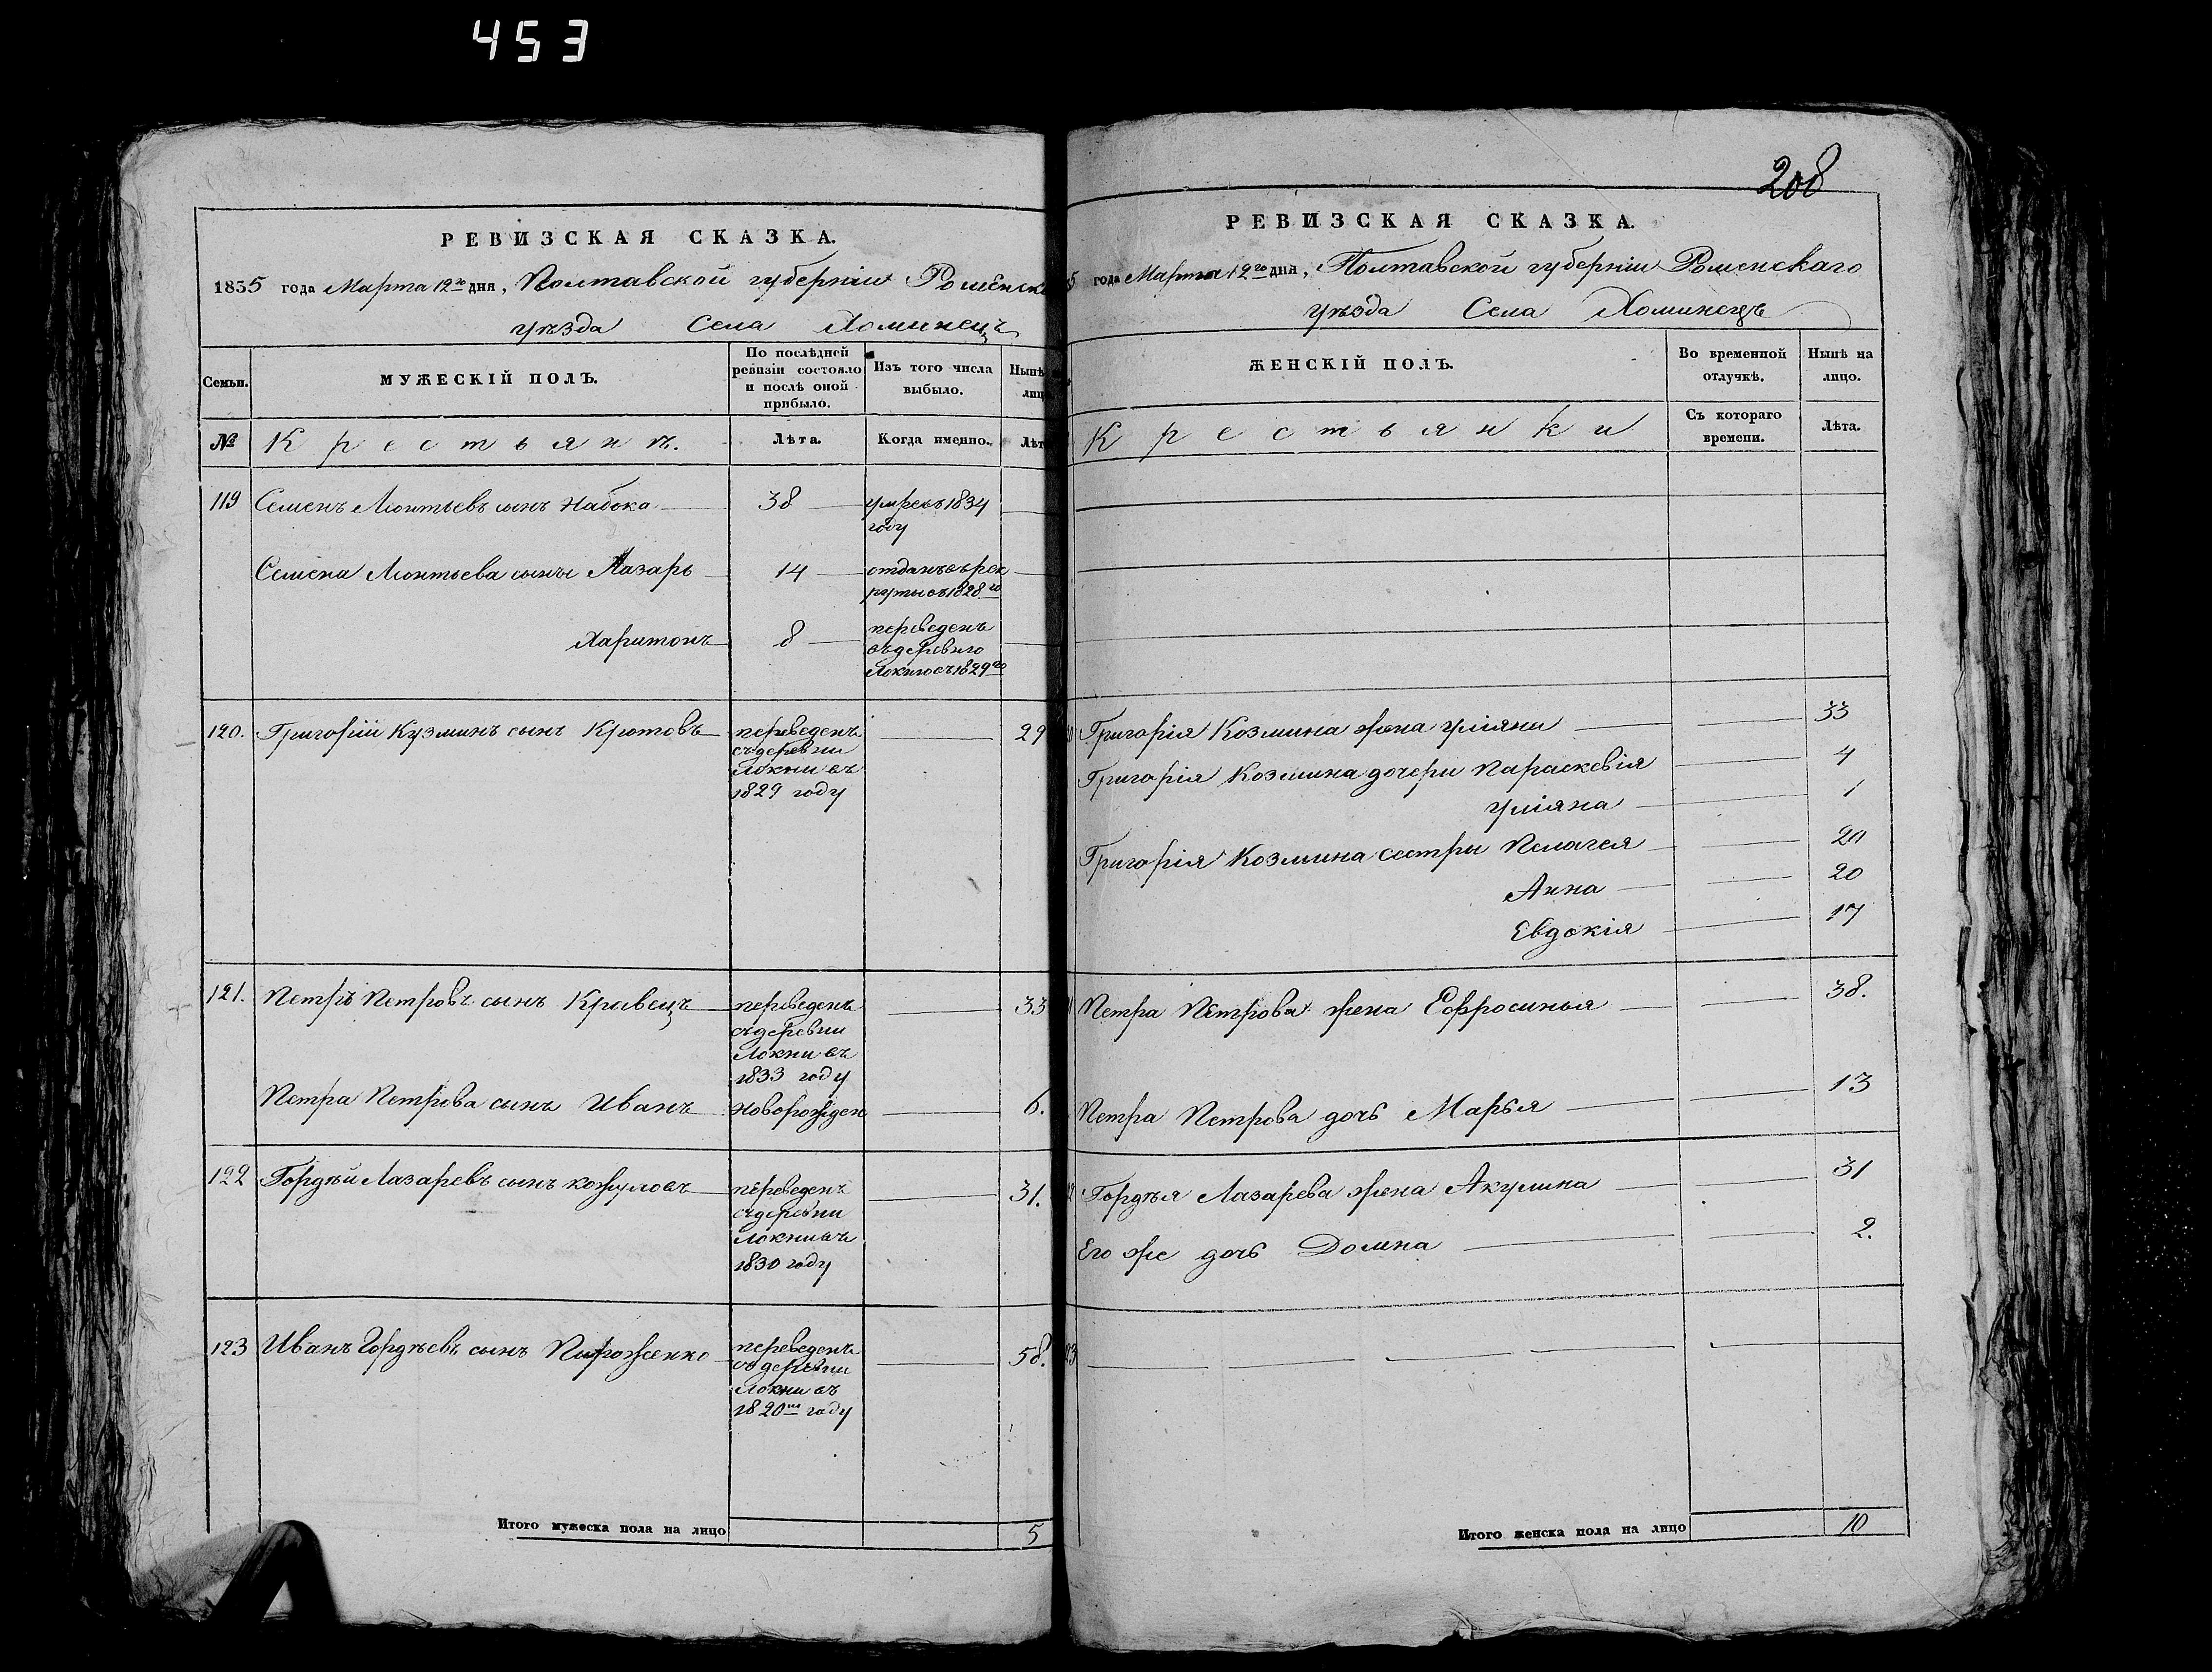 453
РЕВИЗСКАЯ СКАЗКА.
1835 года Марта 12го дня, Полтавской губерніи Роменска
уѣзда Села Хоминецъ
Семьи.
МУЖЕСКІЙ ПОЛЪ.
По послѣдней
ревизіи состояло
и послѣ оной
прибыло.
Изъ того числа
выбыло.
Нынѣ
лиц
№
Крестьянъ.
Лѣта.
Когда именно.
Лѣт
119 Семенъ Леонтьевъ сынъ Набока 38 умре въ 1834
году
Семена Леонтьева сыны Лазарь 14 отданъ въ рек
руты въ 1828го
Харитонъ 8 переведенъ
въ деревню
Локню въ 1829го
120. Григорій Кузминъ сынъ Кротовъ переведенъ 29
съ деревни
Локни въ
1829 году
121. Петръ Петровъ сынъ Кравецъ переведенъ 33
съ деревни
Локни въ
1833 году
Петра Петрова сынъ Иванъ новорожден 6.
122 Гордѣй Лазаревъ сынъ переведенъ 31.
съ деревни
Локни въ
1830 году
123 Иванъ Гордѣевъ сынъ Пироженко переведенъ 58.
съ деревни
Локни въ
1820мъ году
Итого мужеска пола на лицо 5
208
РЕВИЗСКАЯ СКАЗКА.
5 года Марта 12го дня, Полтавской губерніи Роменскаго
уѣзда Села Хоминецъ
ЖЕНСКІЙ ПОЛЪ.
Во временной
отлучкѣ.
Нынѣ на
лицо.
Крестьянки
Съ котораго
времени.
Лѣта.
Григорія Козмина жена Уліяни 33
Григорія Козмина дочери Параскевія 4
Уліяна 1
Григорія Козмина сестры Пелагея 20
Анна 20
Евдокія 17
Петра Петрова жена Ефросинья 38.
Петра Петрова дочь Марья 13
Гордѣя Лазарева жена Акулина 31
Его же дочь Домна 2.
23
Итого женска пола на лицо 10